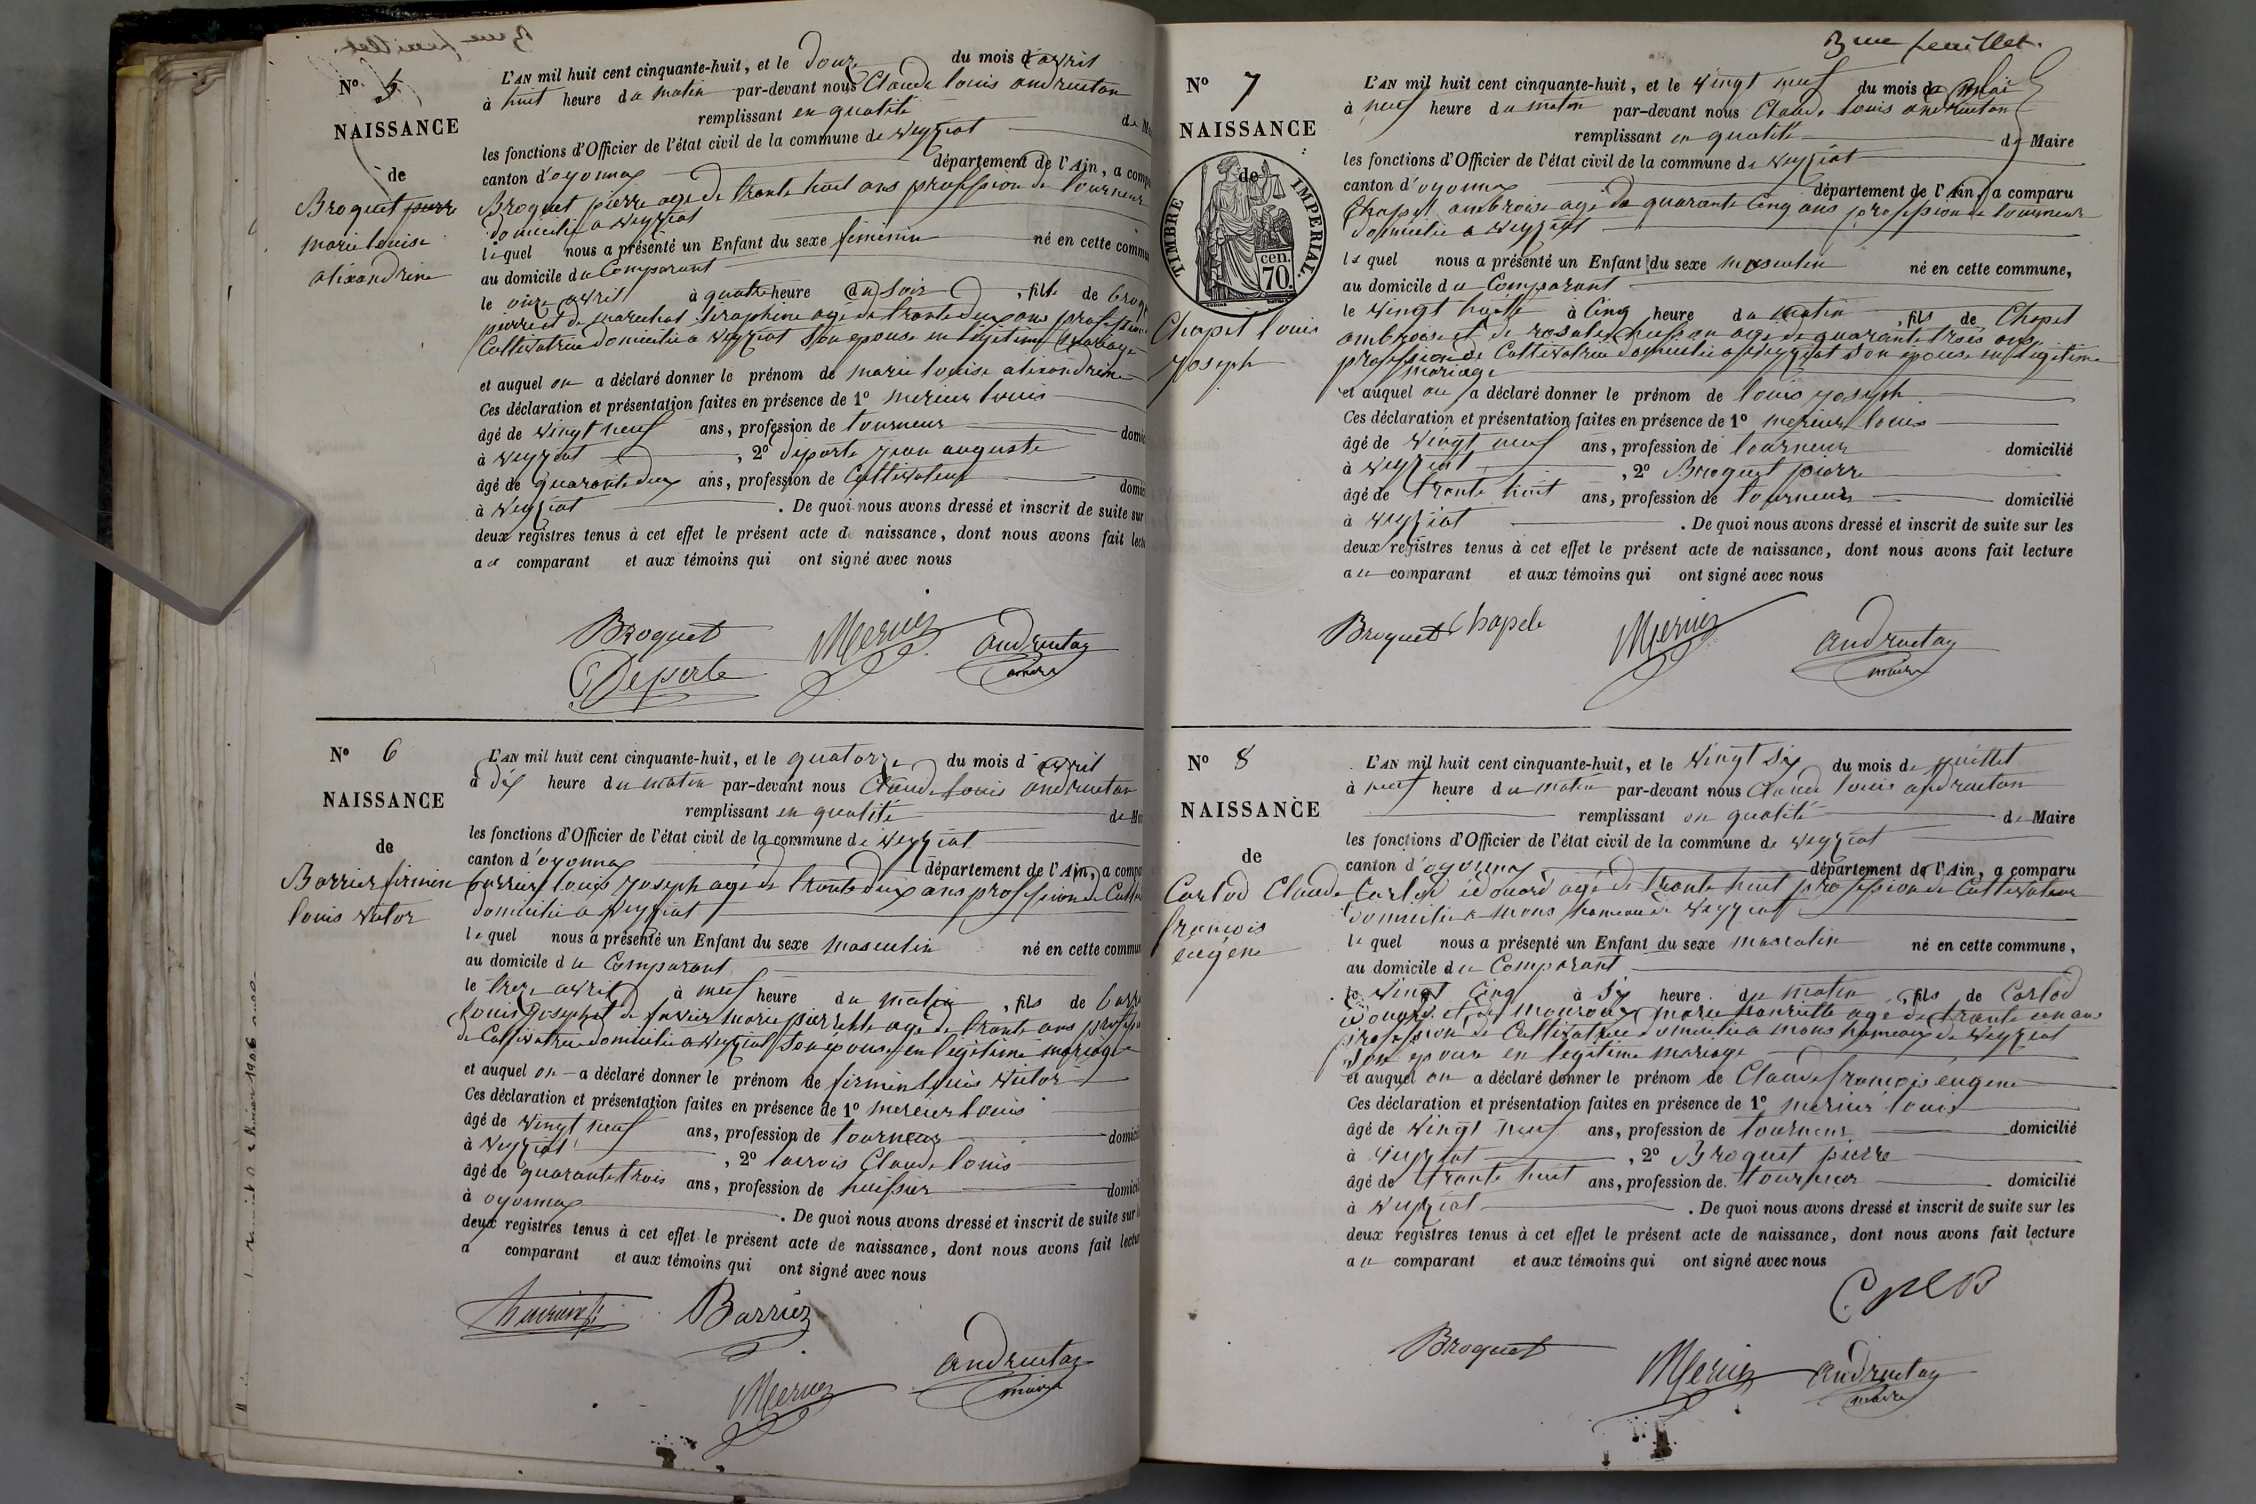 N° 5
NAISSANCE
de
Broquet pierre
marie louise
alixandrine
L'AN mil huit cent cinquante-huit, et le douze du mois d'avril
à huit heure du matin par-devant nous Claude louis andruetan
remplissant en qualité de
les fonctions d'Officier de l'état civil de la commune de Veyziat
canton d'oyonnax département de l'Ain, a
Broquet pierre age de trente huit ans profession de tourneur
domicilié a Veyziat
lequel nous a présenté un Enfant du sexe féminin né en cette
au domicile du Comparant
le onze avril à quatre heure du soir, fille de
pierre et de marechat séraphine agé de trente deux ans profession
Cultivatrice domicilié a Veyziat Son epouse en légitime mariage
et auquel on a déclaré donner le prénom de marie louise alixandrine
Ces déclaration et présentation faites en présence de 1° mercier louis
âgé de vingt neuf ans, profession de tourneur
à Veyziat, 2° deporte jean auguste
âgé de quarante deux ans, profession de Cultivateur
à Veyziat. De quoi nous avons dressé et inscrit de suite sur
deux registres tenus à cet effet le présent acte de naissance, dont nous avons fait
au comparant et aux témoins qui ont signé avec nous
Broquet Mercier andruetan
Deporte maire
N° 6
NAISSANCE
de
Barrier firmin
louis victor
L'AN mil huit cent cinquante-huit, et le quatorze du mois d'avril
à dix heure du matin par-devant nous Claude louis andruetan
remplissant en qualité de
les fonctions d'Officier de l'état civil de la commune de Veyziat
canton d'oyonnax département de l'Ain, a
barrier louis joseph agé de trente deux ans profession de
domicilié a Veyziat
lequel nous a présenté un Enfant du sexe masculin né en cette
au domicile du Comparant
le treze avril à neuf heure du matin, fils de
louis joseph et de favier marie pierrette agé de trente ans
de Cultivatrice domicilié a Veyziat Son epouse en légitime mariage
et auquel on a déclaré donner le prénom de firmin louis victor
Ces déclaration et présentation faites en présence de 1° mercier louis
âgé de vingt neuf ans, profession de tourneur
à Veyziat, 2° lacroix Claude louis
âgé de quarante trois ans, profession de huissier
à oyonnax. De quoi nous avons dressé et inscrit de suite sur
deux registres tenus à cet effet le présent acte de naissance, dont nous avons fait
a comparant et aux témoins qui ont signé avec nous
Barrier
Mercier andruetan
maire
3me feuillet.
N° 7
NAISSANCE
de
TIMBRE IMPERIAL.
70 cen.
Chapel louis
joseph
L'AN mil huit cent cinquante-huit, et le vingt neuf du mois de mai
à neuf heure du matin par-devant nous Claude louis andruetan
remplissant en qualité de Maire
les fonctions d'Officier de l'état civil de la commune de Veyziat
canton d'oyonnax département de l'Ain, a comparu
Chapel ambroise agé de quarante cinq ans profession de tourneur
domicilié a Veyziat
lequel nous a présenté un Enfant du sexe masculin né en cette commune,
au domicile du Comparant
le vingt huit à cinq heure du matin, fils de Chapel
ambroise et de rosalie agé de quarante trois ans
profession de Cultivatrice domicilié a Veyziat Son epouse en légitime
mariage
et auquel on a déclaré donner le prénom de louis joseph
Ces déclaration et présentation faites en présence de 1° mercier louis
âgé de vingt neuf ans, profession de tourneur domicilié
à Veyziat, 2° Broquet pierre
âgé de trente huit ans, profession de tourneur domicilié
à Veyziat. De quoi nous avons dressé et inscrit de suite sur les
deux registres tenus à cet effet le présent acte de naissance, dont nous avons fait lecture
au comparant et aux témoins qui ont signé avec nous
Broquet Chapel Mercier andruetan
maire
N° 8
NAISSANCE
de
Carlod Claude
françois
eugéne
L'AN mil huit cent cinquante-huit, et le vingt six du mois de juillet
à neuf heure du matin par-devant nous Claude louis andruetan
remplissant en qualité de Maire
les fonctions d'Officier de l'état civil de la commune de Veyziat
canton d'oyonnax département de l'Ain, a comparu
Carlod édouard agé de trente huit profession de Cultivateur
domicilié a mons hameau de Veyziat
lequel nous a présenté un Enfant du sexe masculin né en cette commune,
au domicile du Comparant
le vingt cinq à six heure du matin, fils de Carlod
édouard et de marie henriette agé de trente un ans
profession de Cultivatrice domicilié a mons hameau de Veyziat
Son epouse en légitime mariage
et auquel on a déclaré donner le prénom de Claude françois eugéne
Ces déclaration et présentation faites en présence de 1° mercier louis
âgé de vingt neuf ans, profession de tourneur domicilié
à Veyziat, 2° Broquet pierre
âgé de trente huit ans, profession de tourneur domicilié
à Veyziat. De quoi nous avons dressé et inscrit de suite sur les
deux registres tenus à cet effet le présent acte de naissance, dont nous avons fait lecture
au comparant et aux témoins qui ont signé avec nous
Broquet Mercier andruetan
maire